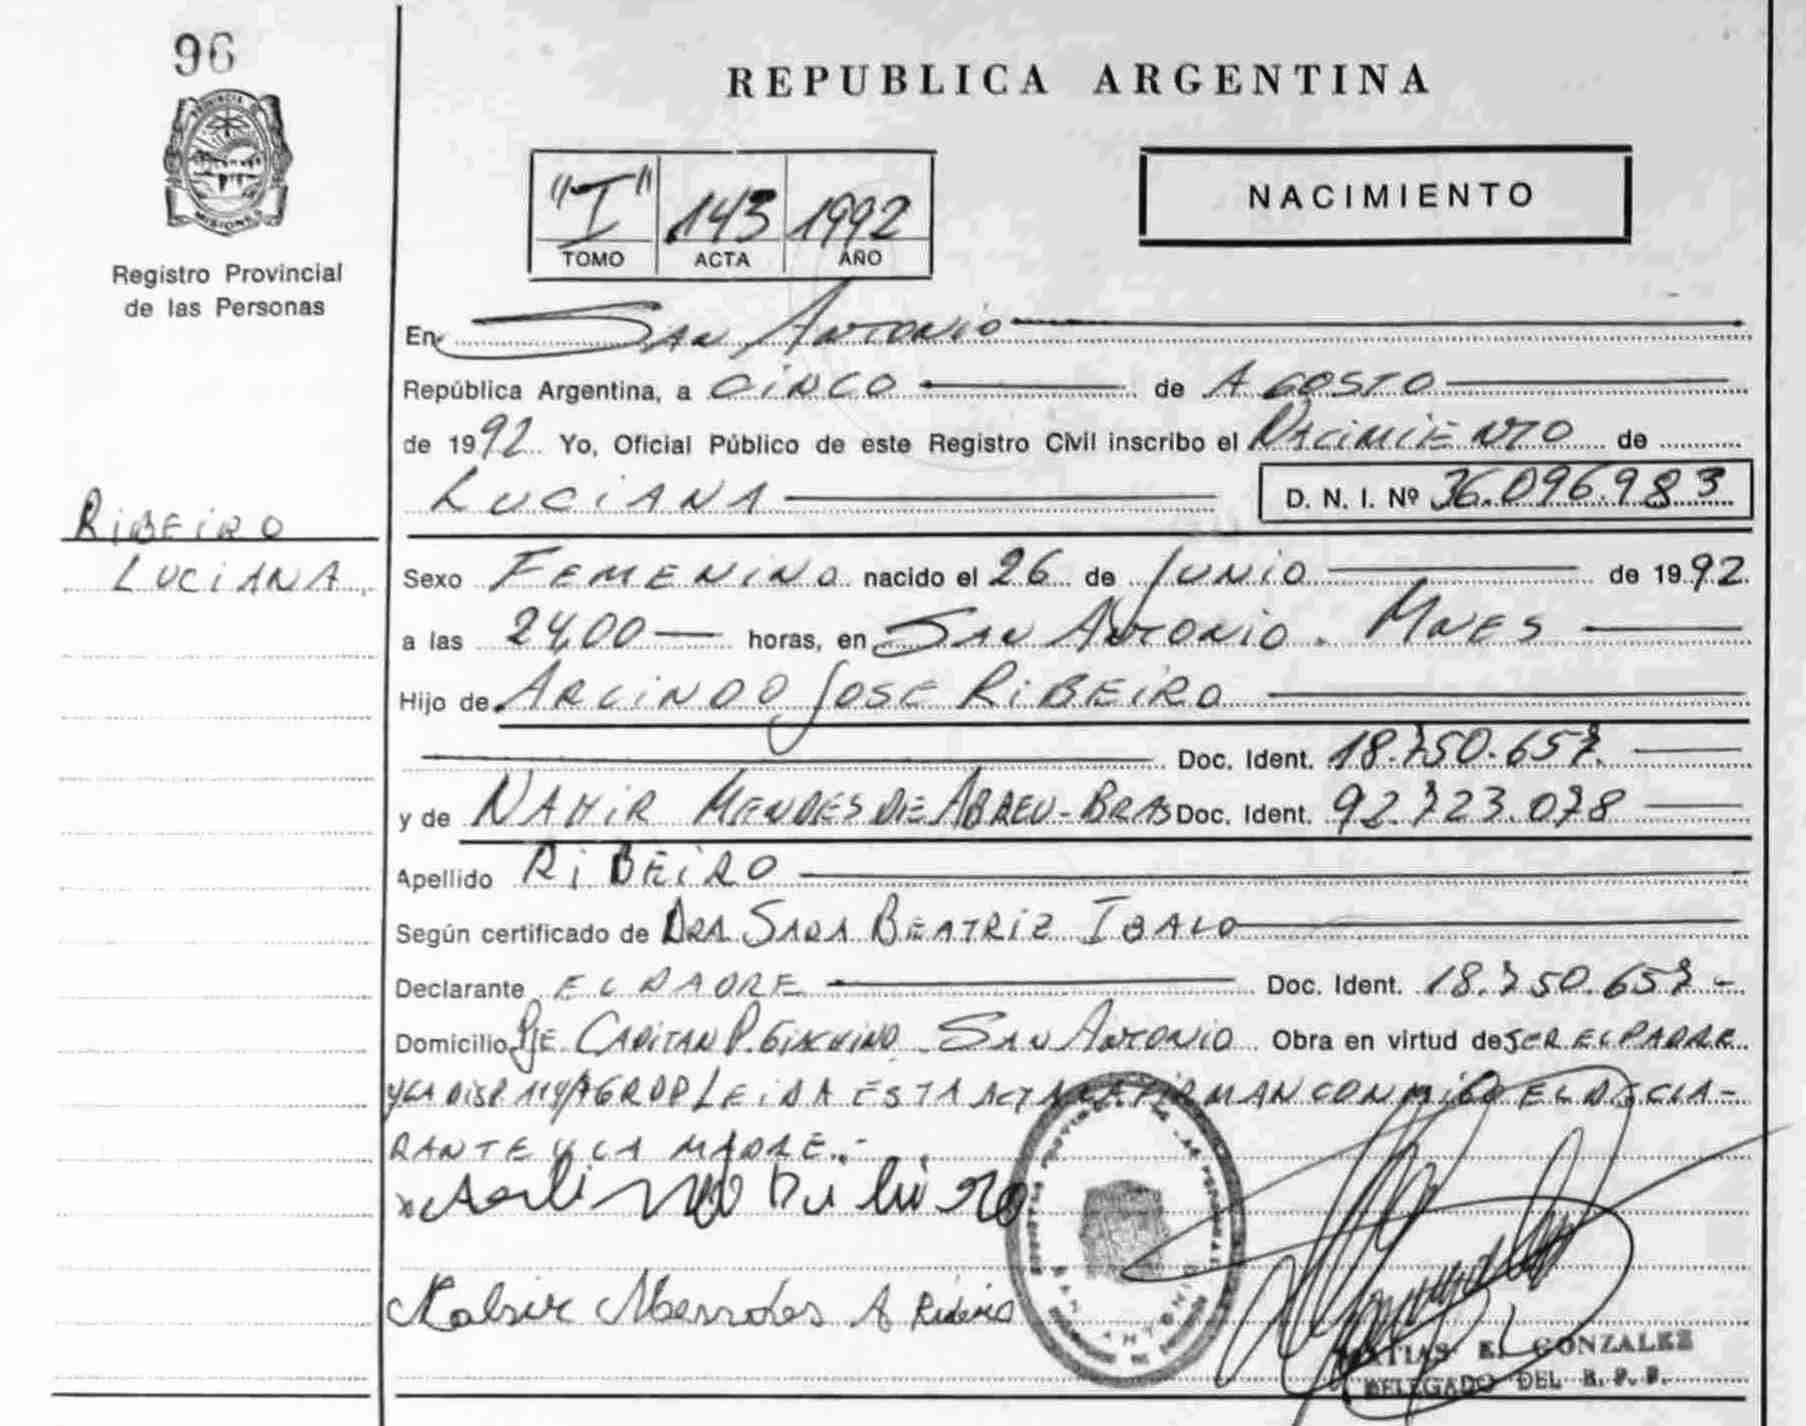 96
PROVINCIA DE
MISIONES
Registro Provincial
de las Personas
REPUBLICA ARGENTINA
"I" 143 1992
TOMO ACTA AÑO
NACIMIENTO
En San Antonio
República Argentina, a CINCO de AGOSTO
de 1992 Yo, Oficial Público de este Registro Civil inscribo el NACIMIENTO de
LUCIANA D. N. I. Nº 36.096.983
RIBEIRO
LUCIANA
Sexo FEMENINO nacido el 26 de JUNIO de 1992
a las 24,00 horas, en SAN ANTONIO. MNES
Hijo de ARCINDO JOSE RIBEIRO
Doc. Ident. 18.750.657.
y de NAHIR MENDES DE ABREU-BRAS Doc. Ident. 92.723.078
Apellido RIBEIRO
Según certificado de DRA SARA BEATRIZ IBALO
Declarante EL PADRE Doc. Ident. 18.750.657-
Domicilio PJE. CAPITAN P. GIACHINO SAN ANTONIO Obra en virtud de SER EL PADRE
Y LA DISP. 114/76 RDP LEIDA ESTA ACTA LA FIRMAN CONMIGO EL DECLA-
RANTE Y LA MADRE.-
SAN ANTONIO
MATIAS E. GONZALEZ
DELEGADO DEL R. P. P.